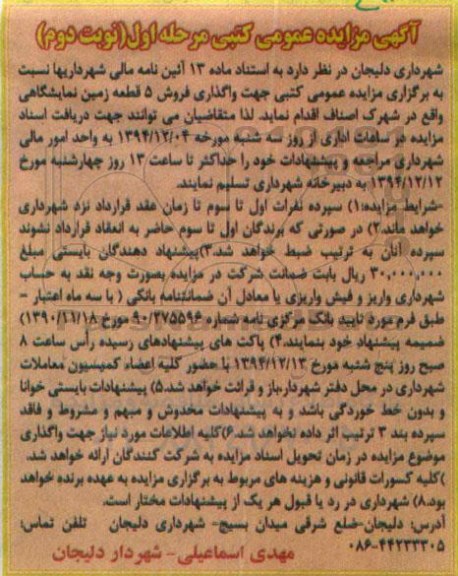 آگهی مزایده عمومی کتبی مرحله اول(نوبت دوم)
شهرداری دلیجان در نظر دارد به استناد ماده ۱۳ آئین نامه مالی شهرداریها نسبت
به برگزاری مزایده عمومی کتبی جهت واگذاری فروش ۵ قطعه زمین نمایشگاهی
واقع در شهرک اصناف اقدام نماید. لذا متقاضیان می توانند جهت دریافت اسناد
مزایده در ساعات اداری از روز سه شنبه مورخه ۱۳۹۴/۱۲/۰۴ به واحد امور مالی
شهرداری مراجعه و پیشنهادات خود را حداکثر تا ساعت ۱۳ روز چهارشنبه مورخ
۱۳۹۴/۱۲/۱۲ به دبیرخانه شهرداری تسلیم نمایند.
-شرایط مزایده:۱) سپرده نفرات اول تا سوم تا زمان عقد قرارداد نزد شهرداری
خواهد ماند.۲) در صورتی که برندگان اول تا سوم حاضر به انعقاد قرارداد نشوند
سپرده آنان به ترتیب ضبط خواهد شد.۳)پیشنهاد دهندگان بایستی مبلغ
۳۰,۰۰۰,۰۰۰ ریال بابت ضمانت شرکت در مزایده بصورت وجه نقد به حساب
شهرداری واریز و فیش واریزی یا معادل آن ضمانتنامه بانکی ( با سه ماه اعتبار -
طبق فرم مورد تایید بانک مرکزی نامه شماره ۹۰/۲۷۵۵۹۶ مورخ ۱۳۹۰/۱۱/۱۸)
ضمیمه پیشنهاد خود بنمایند.۴) پاکت های پیشنهادهای رسیده رأس ساعت ۸
صبح روز پنج شنبه مورخ ۱۳۹۴/۱۲/۱۳ با حضور کلیه اعضاء کمیسیون معاملات
شهرداری در محل دفتر شهردار،باز و قرائت خواهد شد.۵) پیشنهادات بایستی خوانا
و بدون خط خوردگی باشد و به پیشنهادات مخدوش و مبهم و مشروط و فاقد
سپرده بند ۳ ترتیب اثر داده نخواهد شد.۶)کلیه اطلاعات مورد نیاز جهت واگذاری
موضوع مزایده در زمان تحویل اسناد مزایده به شرکت کنندگان ارائه خواهد شد.
)کلیه کسورات قانونی و هزینه های مربوط به برگزاری مزایده به عهده برنده خواهد
بود.۸) شهرداری در رد یا قبول هر یک از پیشنهادات مختار است.
آدرس: دلیجان-ضلع شرقی میدان بسیج- شهرداری دلیجان تلفن تماس:
۰۸۶-۴۴۲۳۳۳۰۵
مهدی اسماعیلی- شهردار دلیجان